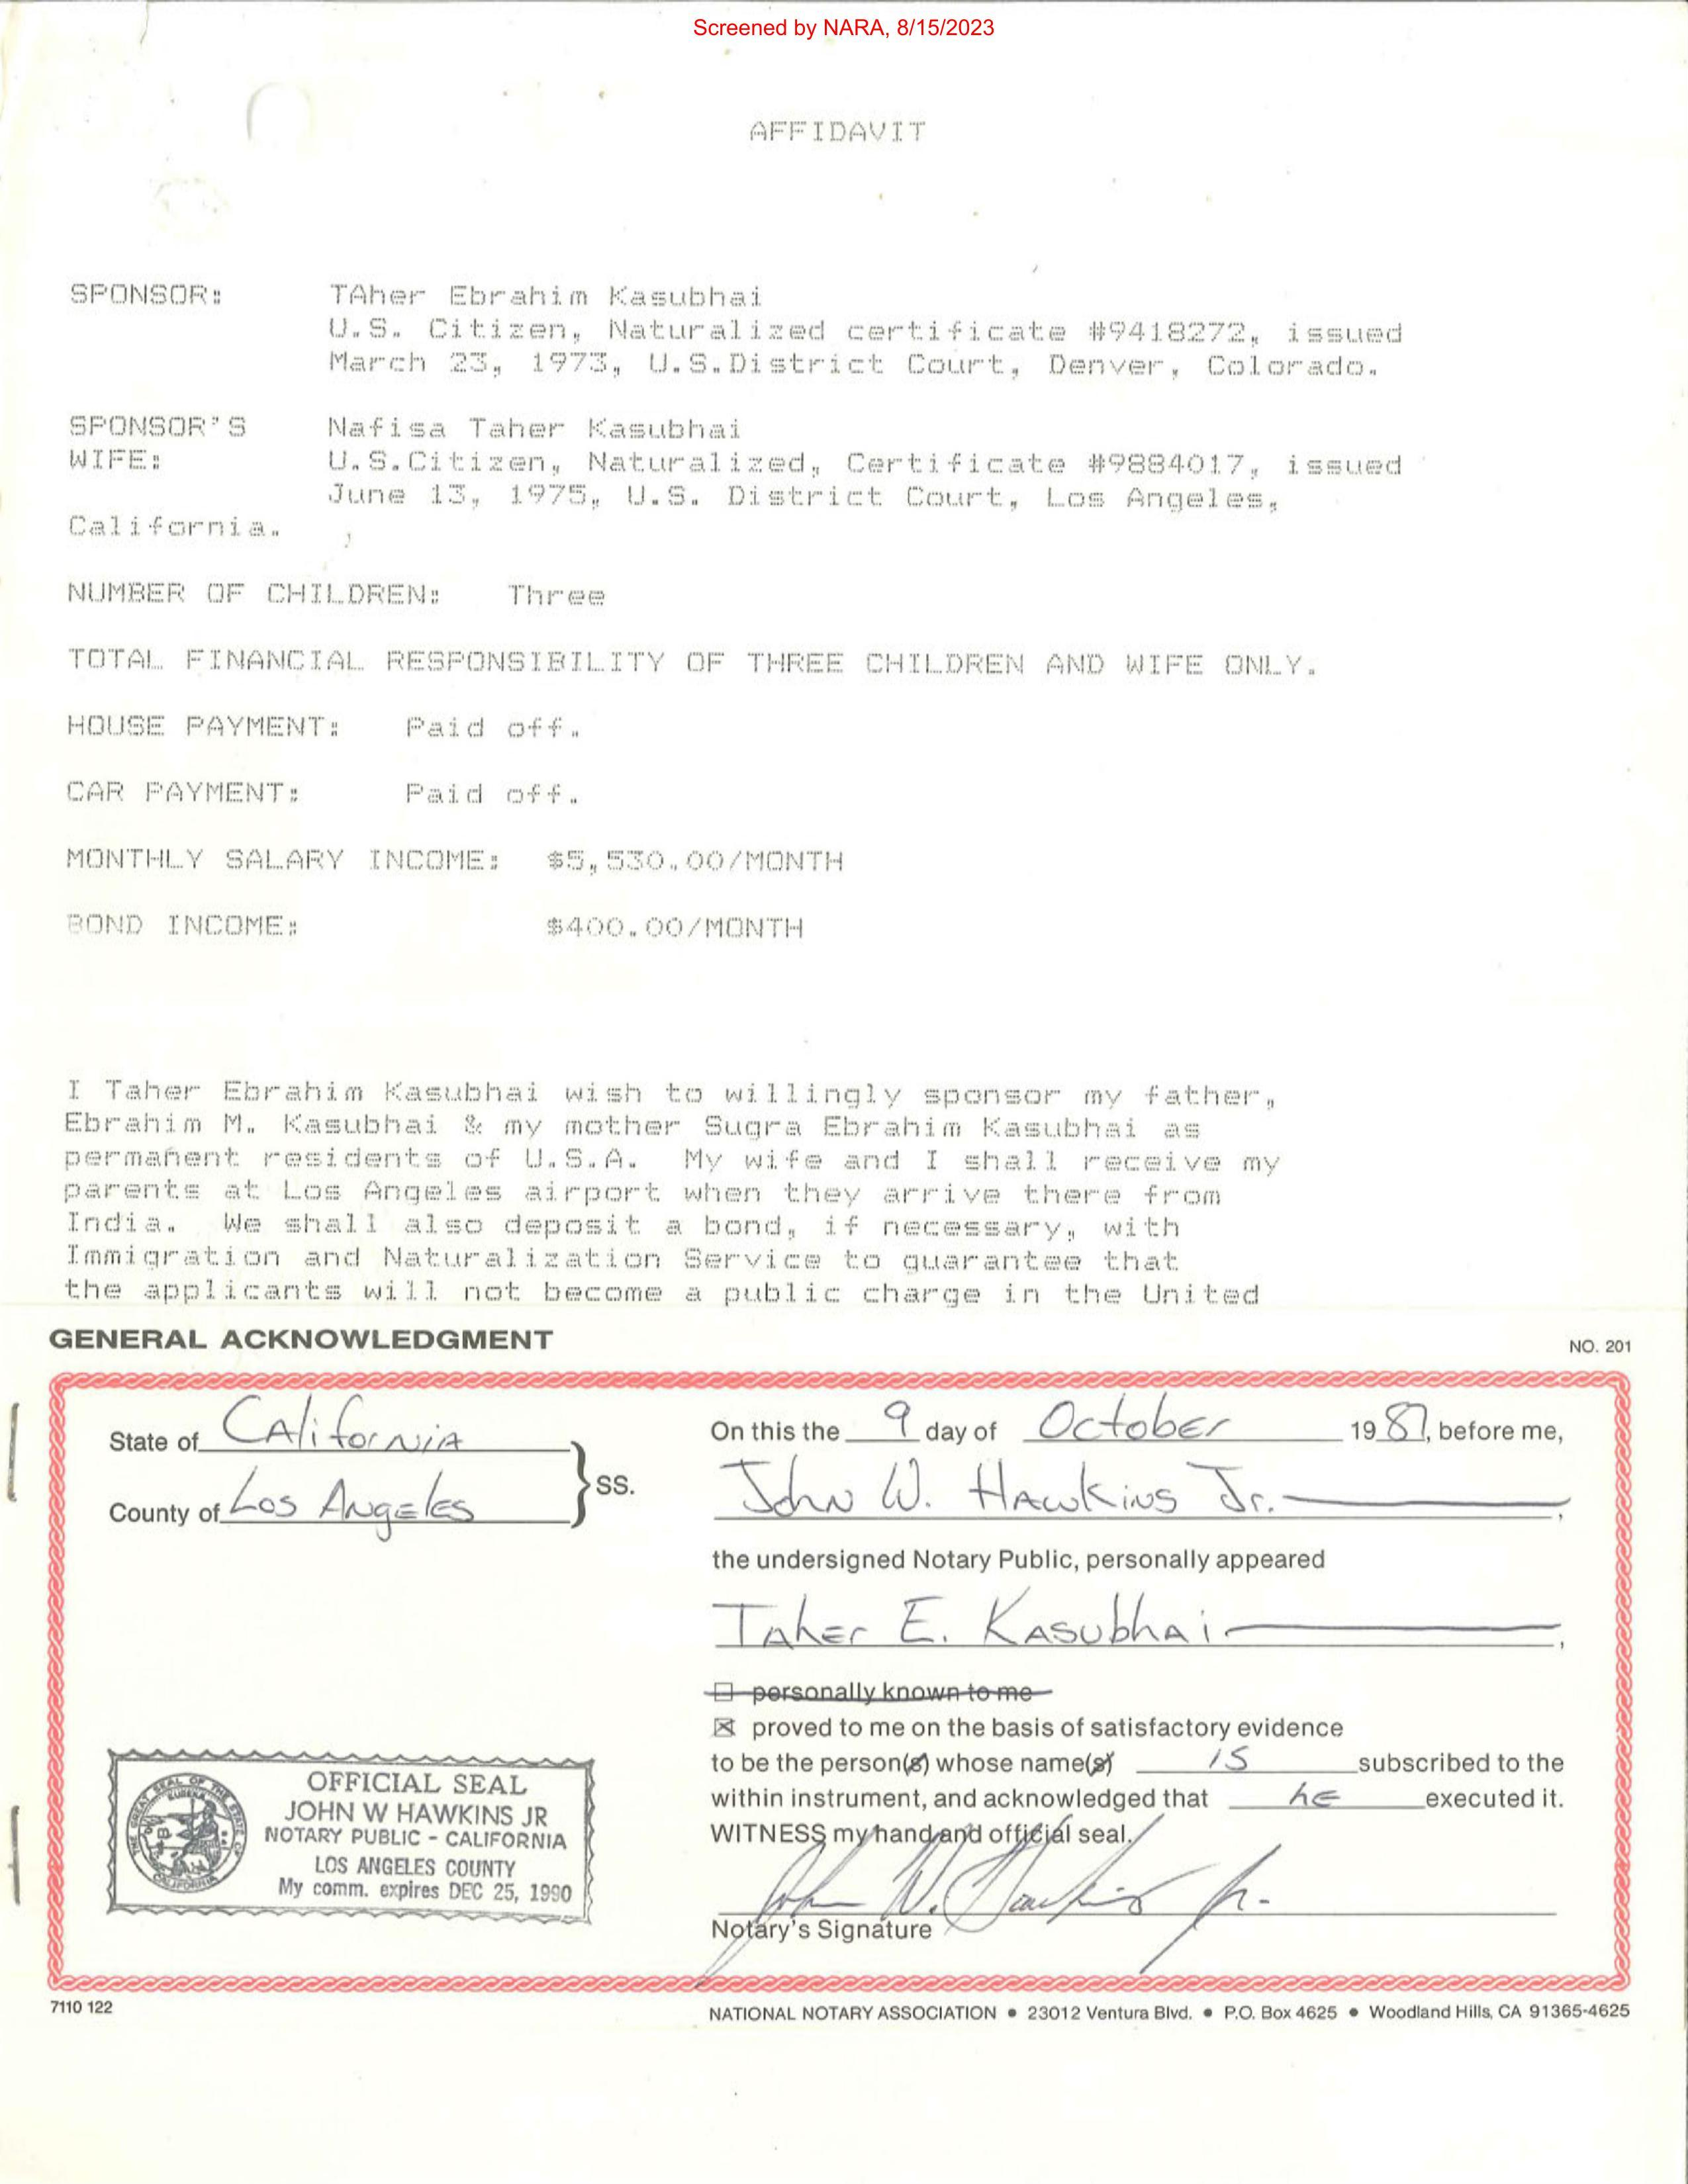 Screened by NARA, 8/15/2023
AFFIDAVIT
SPONSOR: TAher Ebrahim Kasubhai
U.S. Citizen, Naturalized certificate #9418272, issued
March 23, 1973, U.S.District Court, Denver, Colorado.
SPONSOR'S Nafisa Taher Kasubhai
WIFE: U.S.Citizen, Naturalized, Certificate #9884017, issued
June 13, 1975, U.S. District Court, Los Angeles,
California.
NUMBER OF CHILDREN: Three
TOTAL FINANCIAL RESPONSIBILITY OF THREE CHILDREN AND WIFE ONLY.
HOUSE PAYMENT: Paid off.
CAR PAYMENT: Paid off.
MONTHLY SALARY INCOME: $5,530.00/MONTH
BOND INCOME: $400.00/MONTH
I Taher Ebrahim Kasubhai wish to willingly sponsor my father,
Ebrahim M. Kasubhai & my mother Sugra Ebrahim Kasubhai as
permanent residents of U.S.A. My wife and I shall receive my
parents at Los Angeles airport when they arrive there from
India. We shall also deposit a bond, if necessary, with
Immigration and Naturalization Service to guarantee that
the applicants will not become a public charge in the United
GENERAL ACKNOWLEDGMENT NO. 201
State of California
County of Los Angeles
SS.
On this the 9 day of October 1987, before me,
John W. Hawkins Jr.,
the undersigned Notary Public, personally appeared
Taher E. Kasubhai,
☐ personally known to me
☒ proved to me on the basis of satisfactory evidence
to be the person(s) whose name(s) is subscribed to the
within instrument, and acknowledged that he executed it.
WITNESS my hand and official seal.
John W. Hawkins Jr.
Notary's Signature
THE GREAT SEAL OF THE STATE OF CALIFORNIA
EUREKA
OFFICIAL SEAL
JOHN W HAWKINS JR
NOTARY PUBLIC - CALIFORNIA
LOS ANGELES COUNTY
My comm. expires DEC 25, 1990
7110 122 NATIONAL NOTARY ASSOCIATION • 23012 Ventura Blvd. • P.O. Box 4625 • Woodland Hills, CA 91365-4625